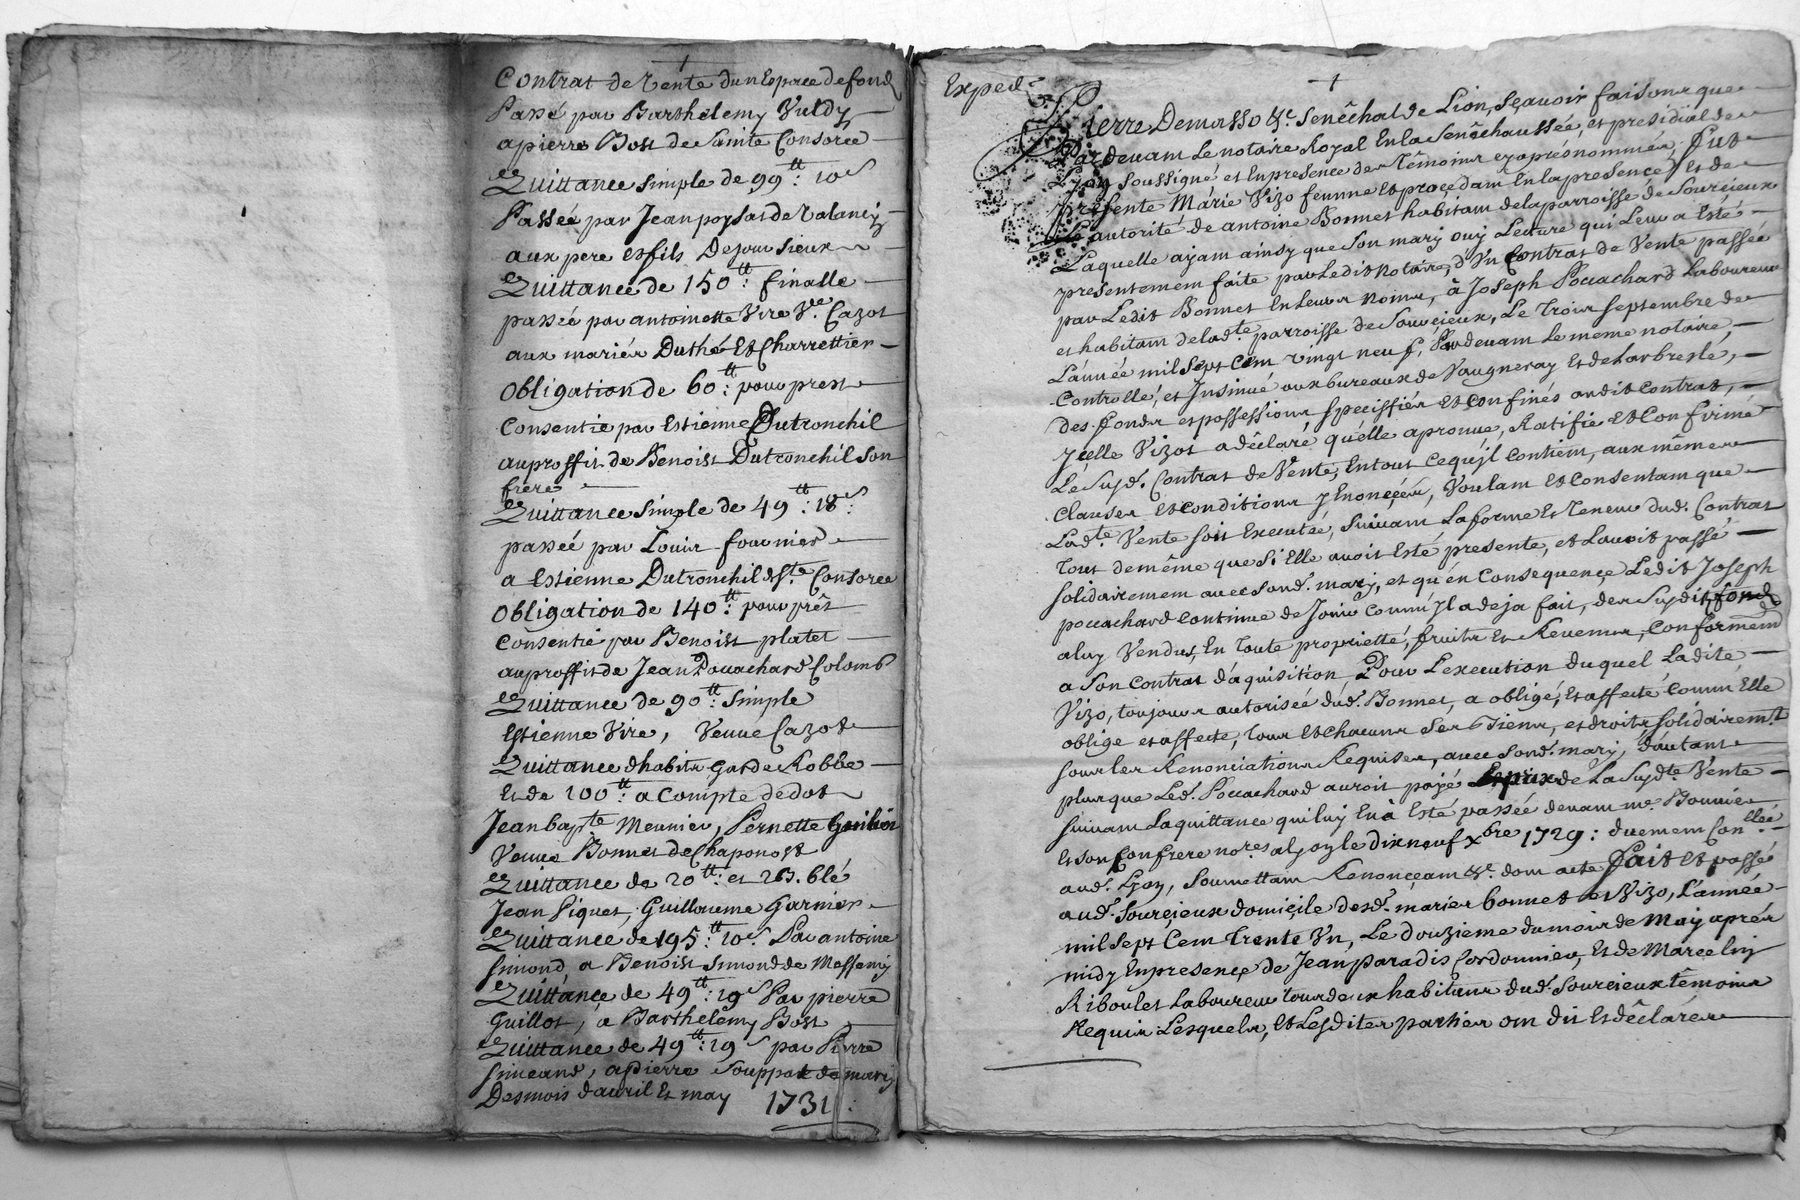 Contrat de Vente dun Espace de fond
Passé par Barthelemy Vuldy
a pierre Bost de Sainte Consorce
Quittance simple de 99tt: 10s
Passée par Jean poysat de Valancy
aux pere et fils Dejoursieux
Quittance de 150tt: finalle
passée par antoinette Vire Ve. Cazot
aux mariés Duthé Et Charrettier
Obligation de 60tt: pour prest
Consentie par Estienne Dutronchil
au proffit de Benoist Dutronchil son
frere
Quittance simple de 49tt: 18s:
passée par Louis fournier
a Estienne Dutronchil de Ste. Consorce
Obligation de 140tt: pour prêt
Consentie par Benoist platet
au proffit de Jean Pouachard Colomb
Quittance de 90tt: simple
Estienne Vire, Veuve Cazot
Quittance dhabits garde Robbe
Et de 100tt: a Compte de dot
Jean bapte Meunier, Pernette
Veuve Bonnet de Chaponost
Quittance de 20tt: et 2 B. blé
Jean Piquet, Guillaume Garnier
Quittance de 195tt: 10s. Par antoine
Simond, a Benoist Simond de Messemy
Quittance de 49tt: 19s Par pierre
Guillot, a Barthélemy Bost
Quittance de 49tt: 19s par Pierre
Simeand, a pierre Souppat de marcy
Des mois davril Et may 1731:
Exped.
Pierre Demasso &c. Senêchal de Lion, Sçavoir faisons que
Pardevant Le notaire Royal En la Senêchaussée, et presidial de
Lyon soussigné et En presence des Têmoins cy aprés nommés, fut
présente Mârie Vizo femme et procedant En la presence Et de
Lautorité de antoine Bonnet habitant de la parroisse de Sourcieux
Laquelle ayant ainsy que Son mary ouy Lecture qui Leur a Esté
presentement faite par Ledit Notaire, d'Un Contrat de Vente passée
par Ledit Bonnet En Leurs Noms, à Joseph Pouachard Laboureur
et habitant de Ladte. parroisse de Sourcieux, Le Trois Septembre de
L'année mil Sept Cent vingt neuf, Pardevant Le meme notaire,
Controllé, et Insinué aux bureaux de Vaugneray Et de Larbresle,
des fonds et possessions Speciffiés Et Confinés audit Contrat,
Jcelle Vizot a déclaré qu'elle aprouve, Ratifie Et Confirme
Le Susd. Contrat de Vente, En tout Ce qu'jl Contient, aux mêmes
Clauses Et Conditions y Enoncées, Voulant Et Consentant que
Ladte. Vente soit Executée, Suivant La forme Et Teneur dud. Contrat
Tout de même que Si Elle avoit Esté presente, et L'avoit passé
solidairement avec sond. mary, et qu'en Consequence Ledit Joseph
pouachard continue de Jouir Comm'jl a deja fait, des Susdits fonds
a luy Vendus, En Toute proprietté, fruits Et Revenus, Conformemt.
a Son Contrat d'aquisition. Pour L'execution duquel Ladite
Vizo, toujours autorisée dud. Bonnet, a obligé, Et affecté Comm'Elle
oblige et affecte, tous Et Chacuns Ses Biens, et droits solidairemt.
sous les Renonciations Requises, avec Sond. mary, d'autant
plus que Led. Pouachard auroit payé Le prix de La Susdte. Vente
suivant La quittance qui luy En à Esté passée devant me. Bonnier
Et son Confrere nores. a Lyon le dixneuf Xbre 1729: duement Conllée.
aud. Lyon, Soumettant Renonçeant &c. dont acte fait Et passé
aud. Sourcieux domicile desd. mariés bonnet et Vizo, L'année
mil Sept Cent Trente Un, Le douzieme du mois de May aprés
midy En presence de Jean paradis Cordonnier, Et de Marcelin
Riboulet Laboureur tous deux habitans dud. Sourcieux têmoins
Requis Lesquels, Et Lesdites parties ont dit Et dêclaré